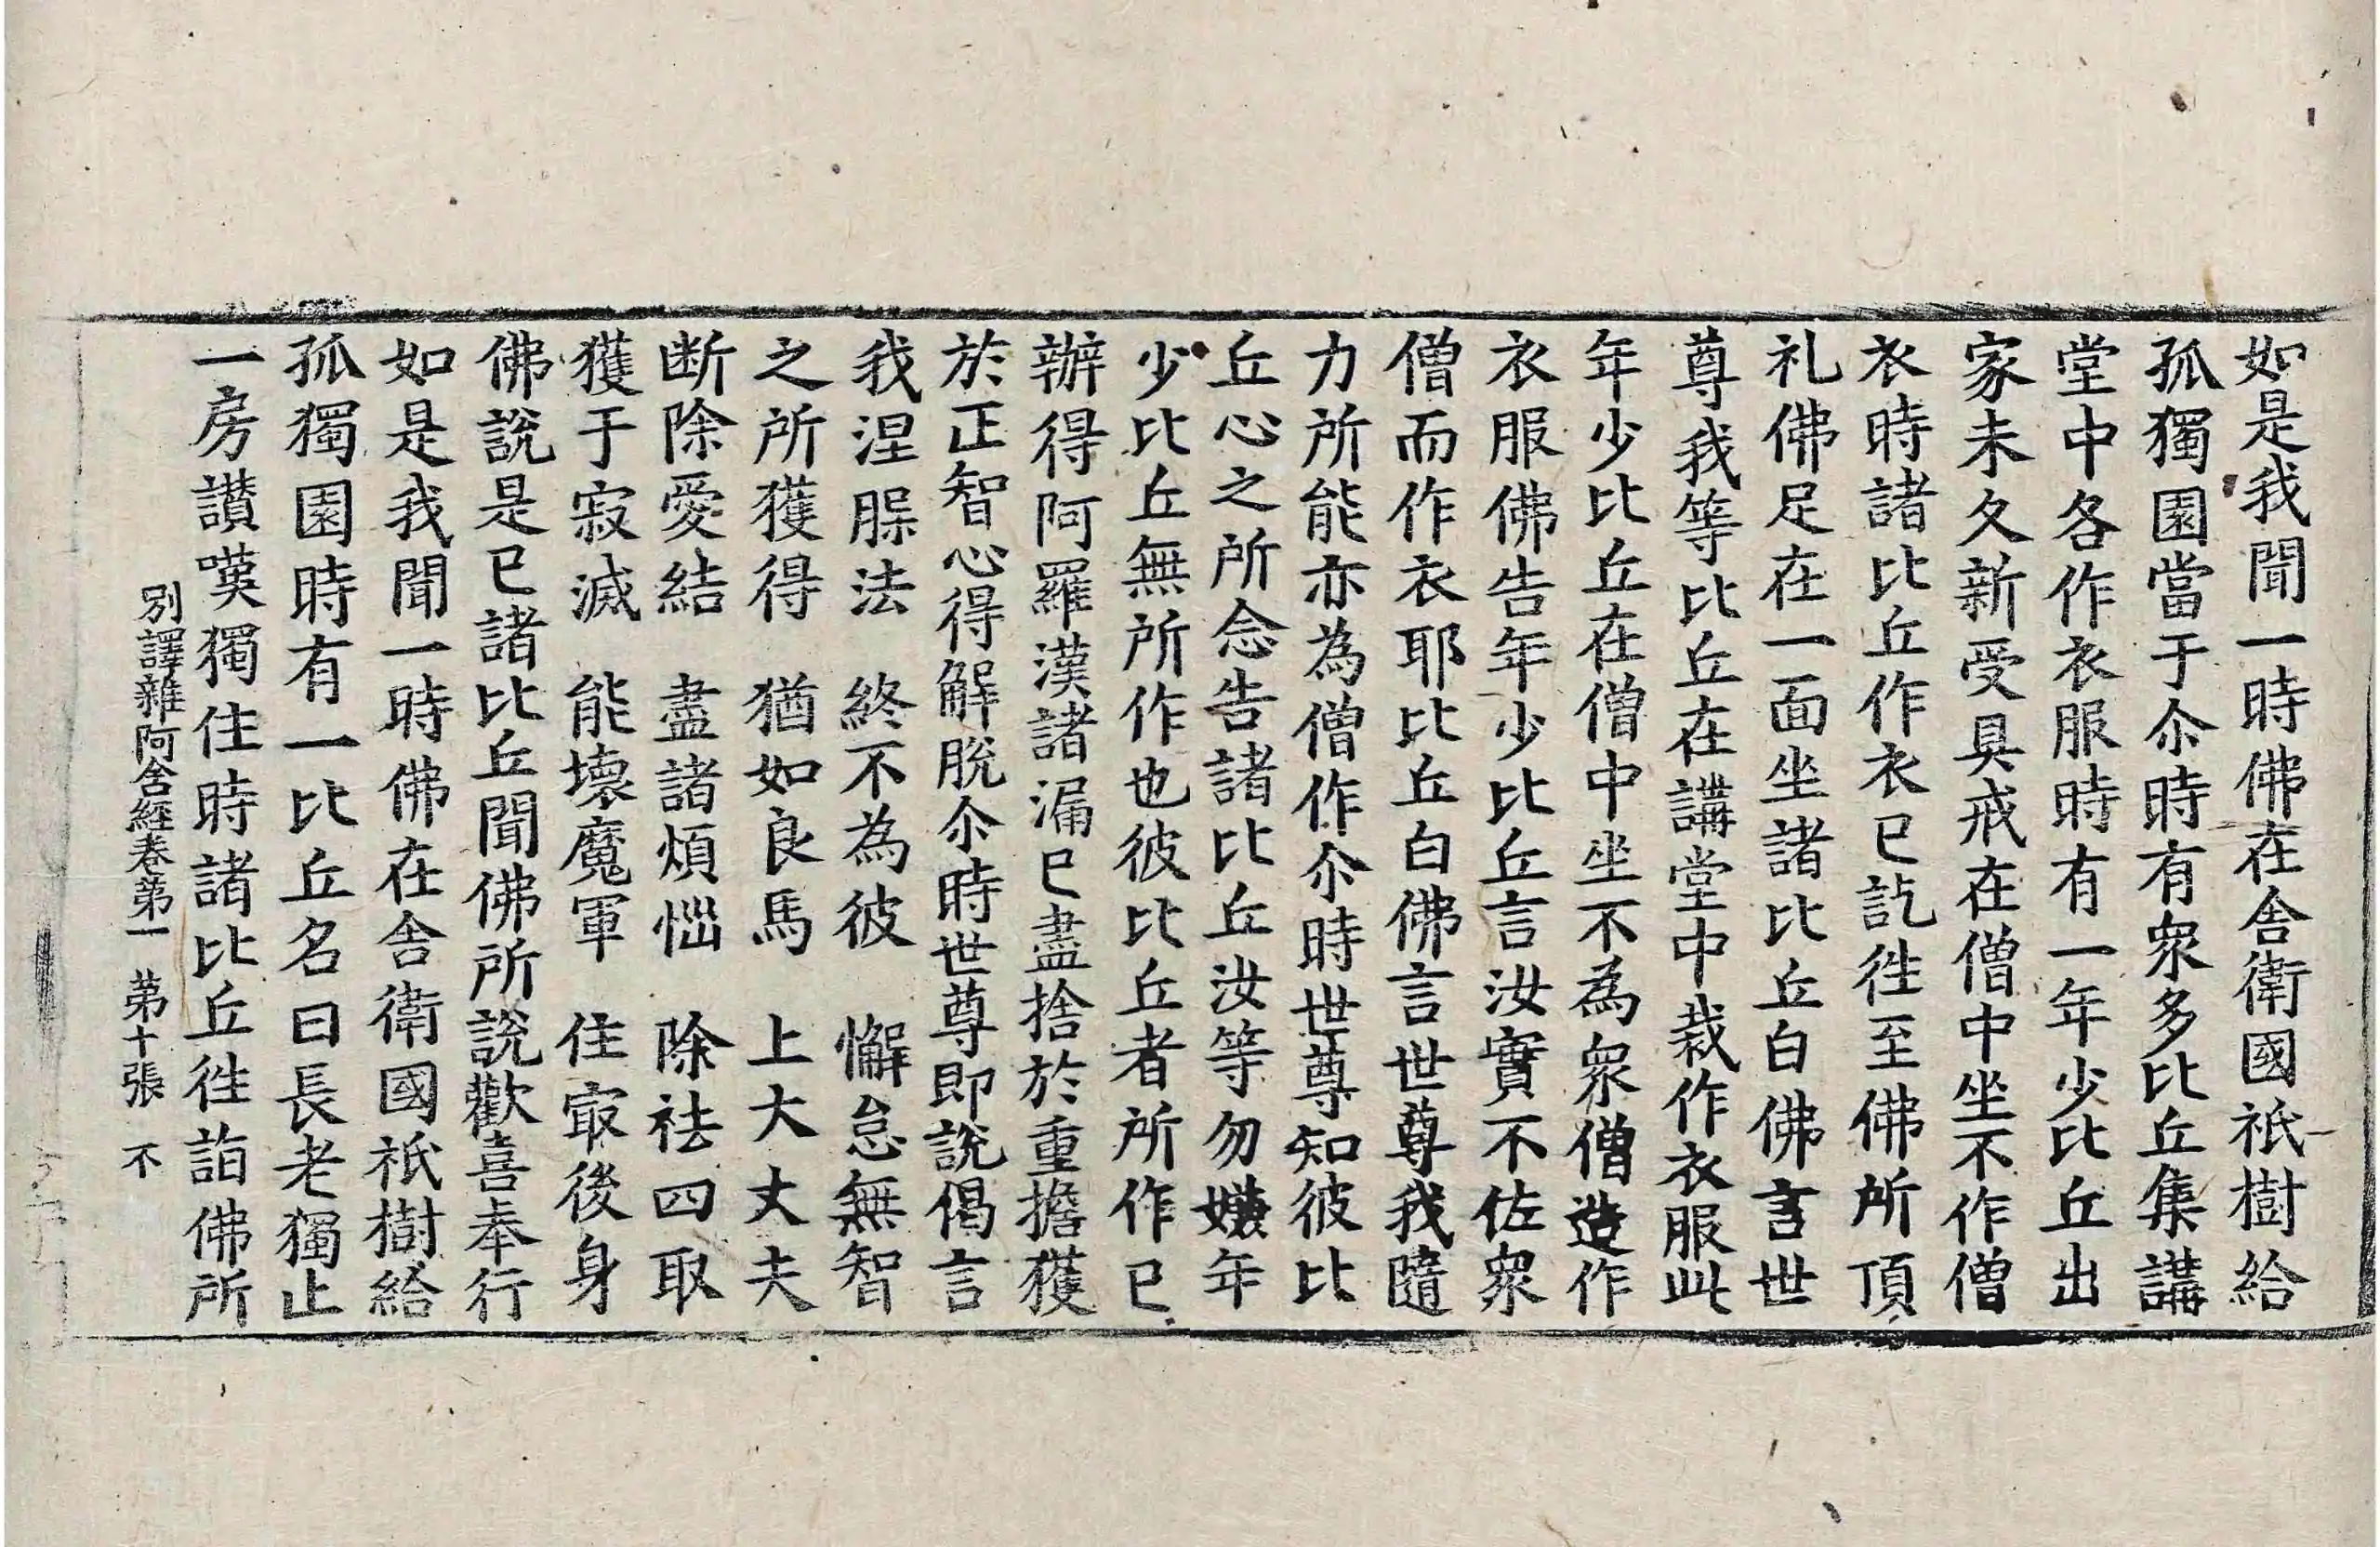 如是我聞一時佛在舎衛國祇樹給
孤獨園當于尒時有衆多比丘集講
堂中各作衣服時有一年少比丘出
家未久新受具戒在僧中坐不作僧
衣時諸比丘作衣已訖徃至佛所頂
礼佛足在一面坐諸比丘白佛言世
尊我等比丘在講堂中裁作衣服此
年少比丘在僧中坐不為衆僧造作
衣服佛告年少比丘言汝實不佐衆
僧而作衣耶比丘白佛言世尊我隨
力所能亦為僧作尒時世尊知彼比
丘心之所念告諸比丘汝等勿嫌年
少比丘無所作也彼比丘者所作已
辦得阿羅漢諸漏已盡捨於重擔獲
於正智心得解脫尒時世尊即說偈言
我涅𦛔法　終不為彼　懈怠無智
之所獲得　猶如良馬　上大丈夫
断除愛結　盡諸煩惱　除祛四取
獲于寂滅　能壞魔軍　住㝡後身
佛說是已諸比丘聞佛所說歡喜奉行
如是我聞一時佛在舎衛國祇樹給
孤獨園時有一比丘名曰長老獨止
一房讃嘆獨住時諸比丘徃詣佛所
別譯雜阿含經卷第一　第十張　不